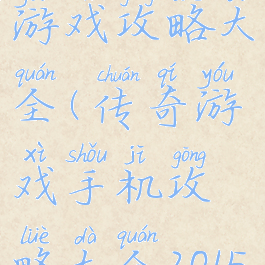 游戏攻略大
quán chuán qí yóu
全(传奇游
xì shǒu jī gōng
戏手机攻
lüè dà quán
略大全2015